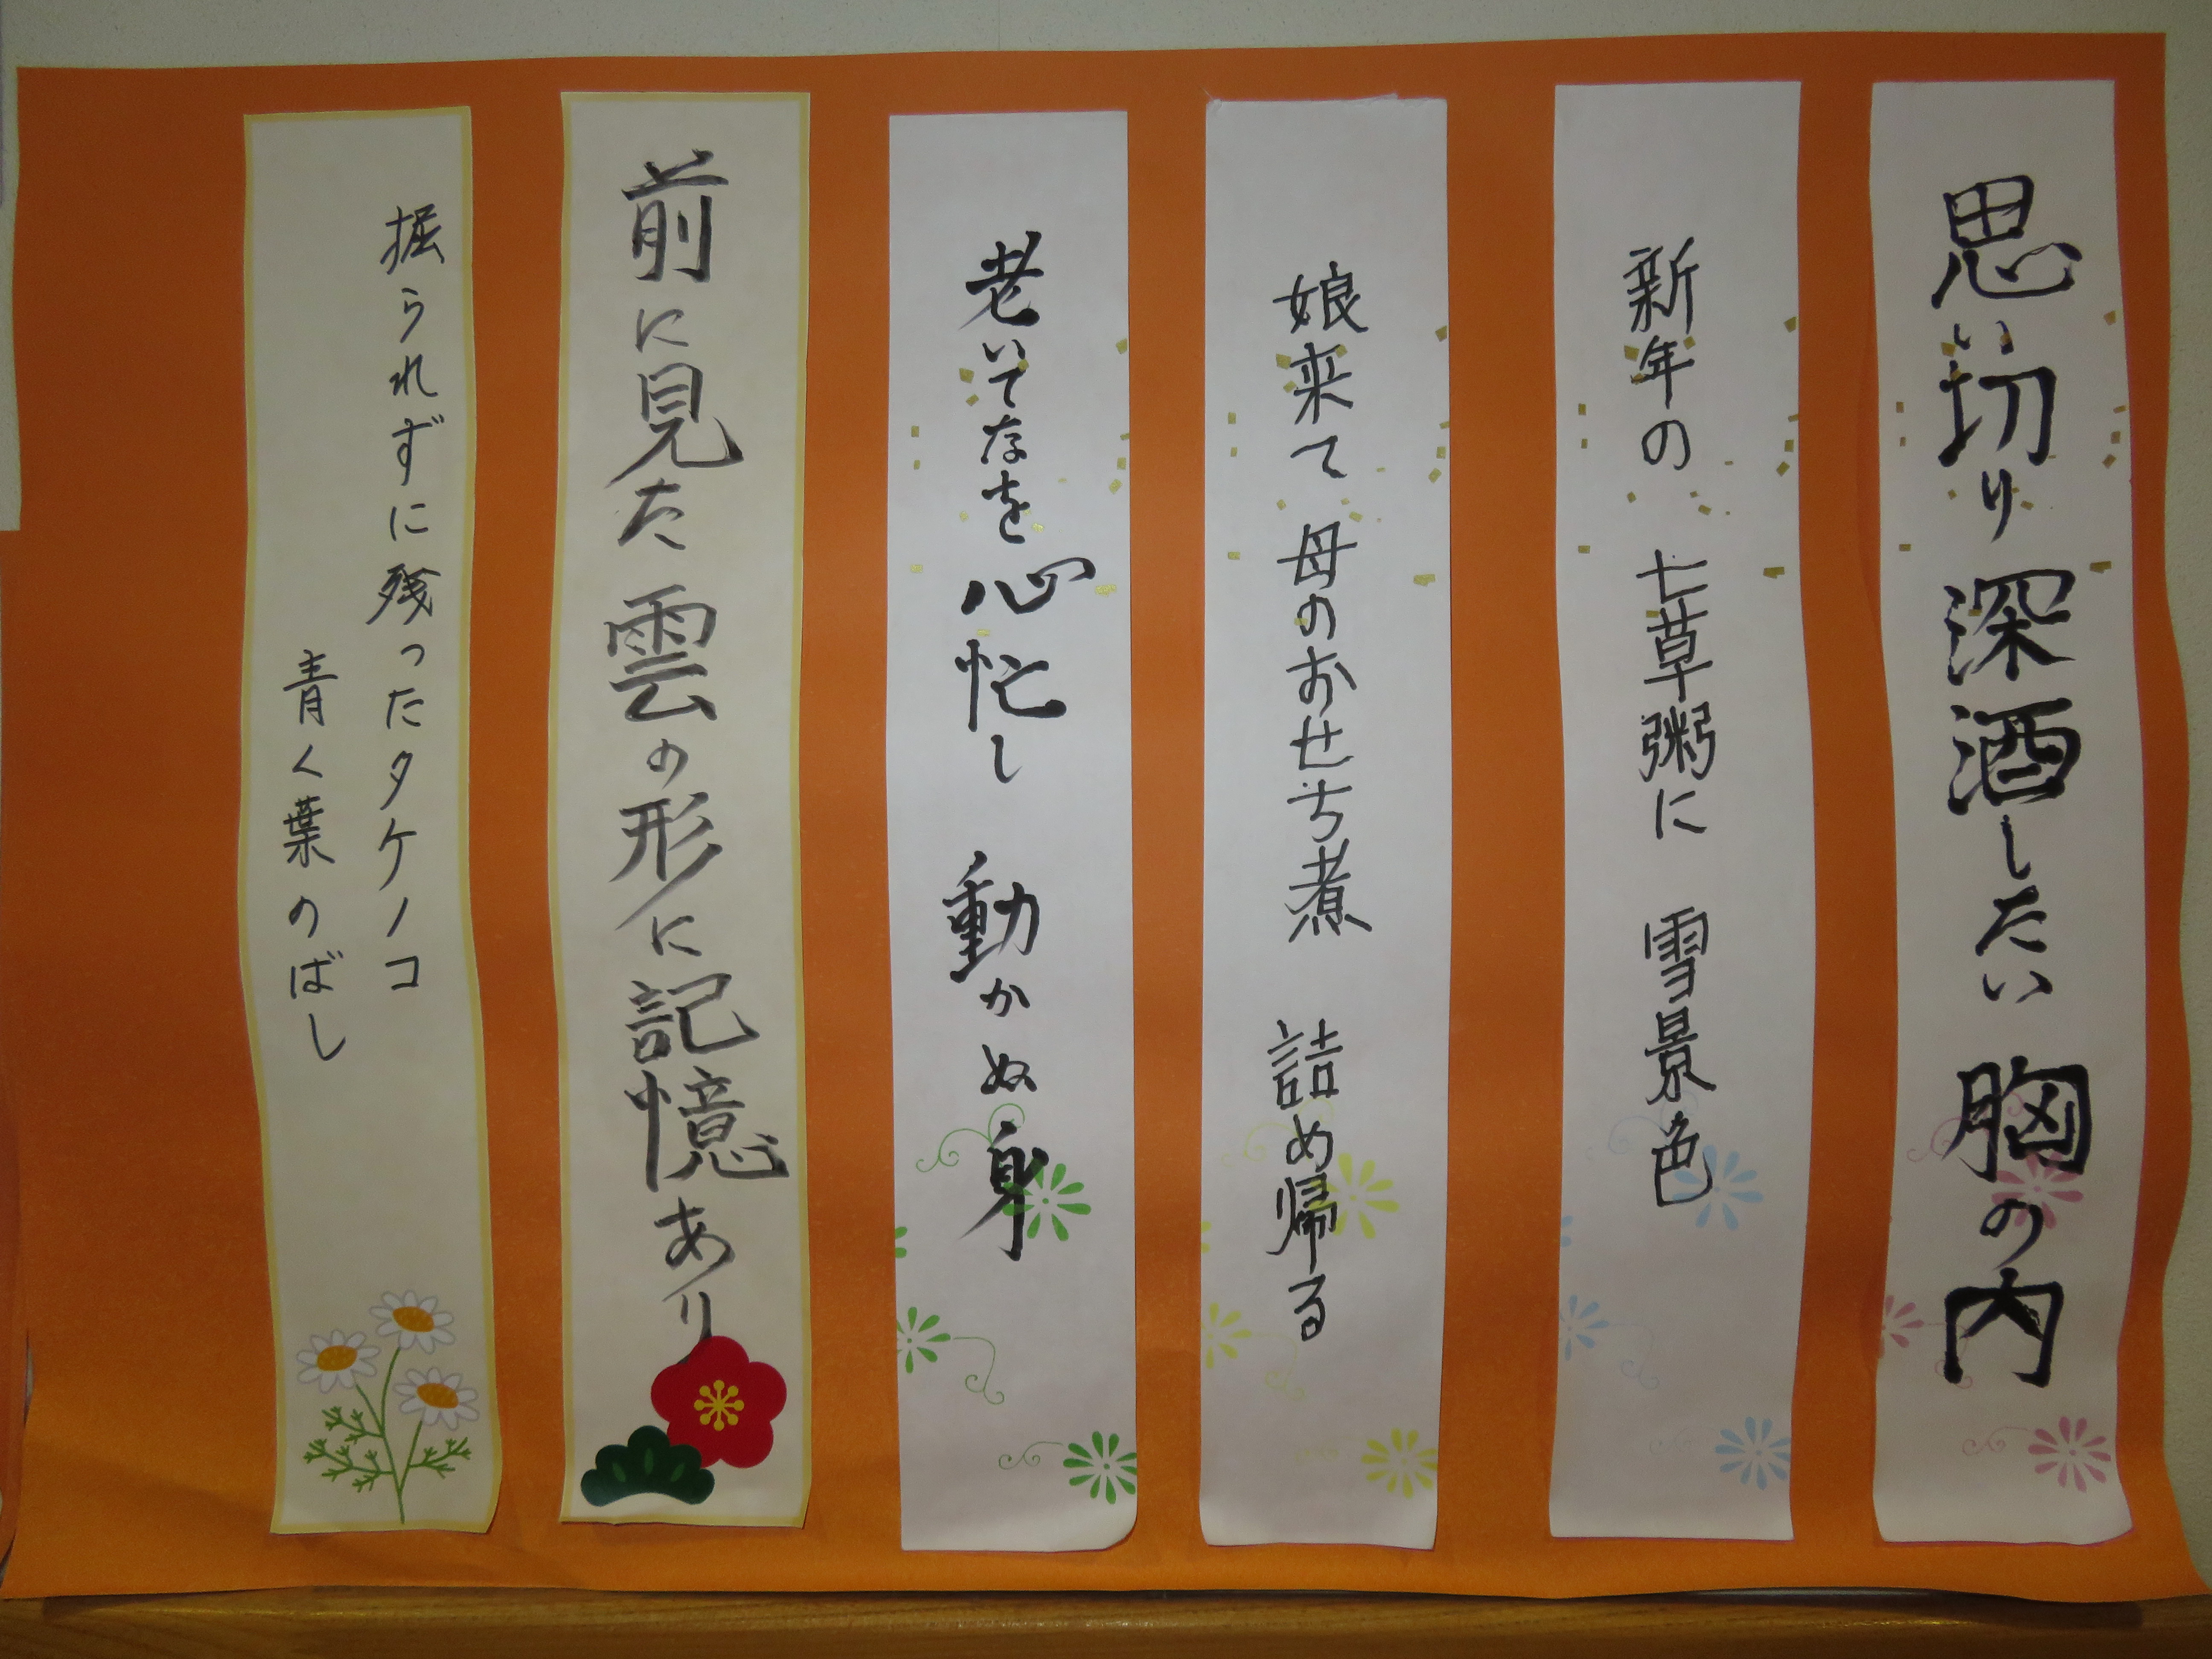 思い切り深酒したい胸の内
新年の 七草粥に 雪景色
娘来て 母のおせち煮 詰め帰る
老いてなを心忙し 動かぬ身
前に見た雲の形に記憶あり
掘られずに残ったタケノコ
青く葉のばし